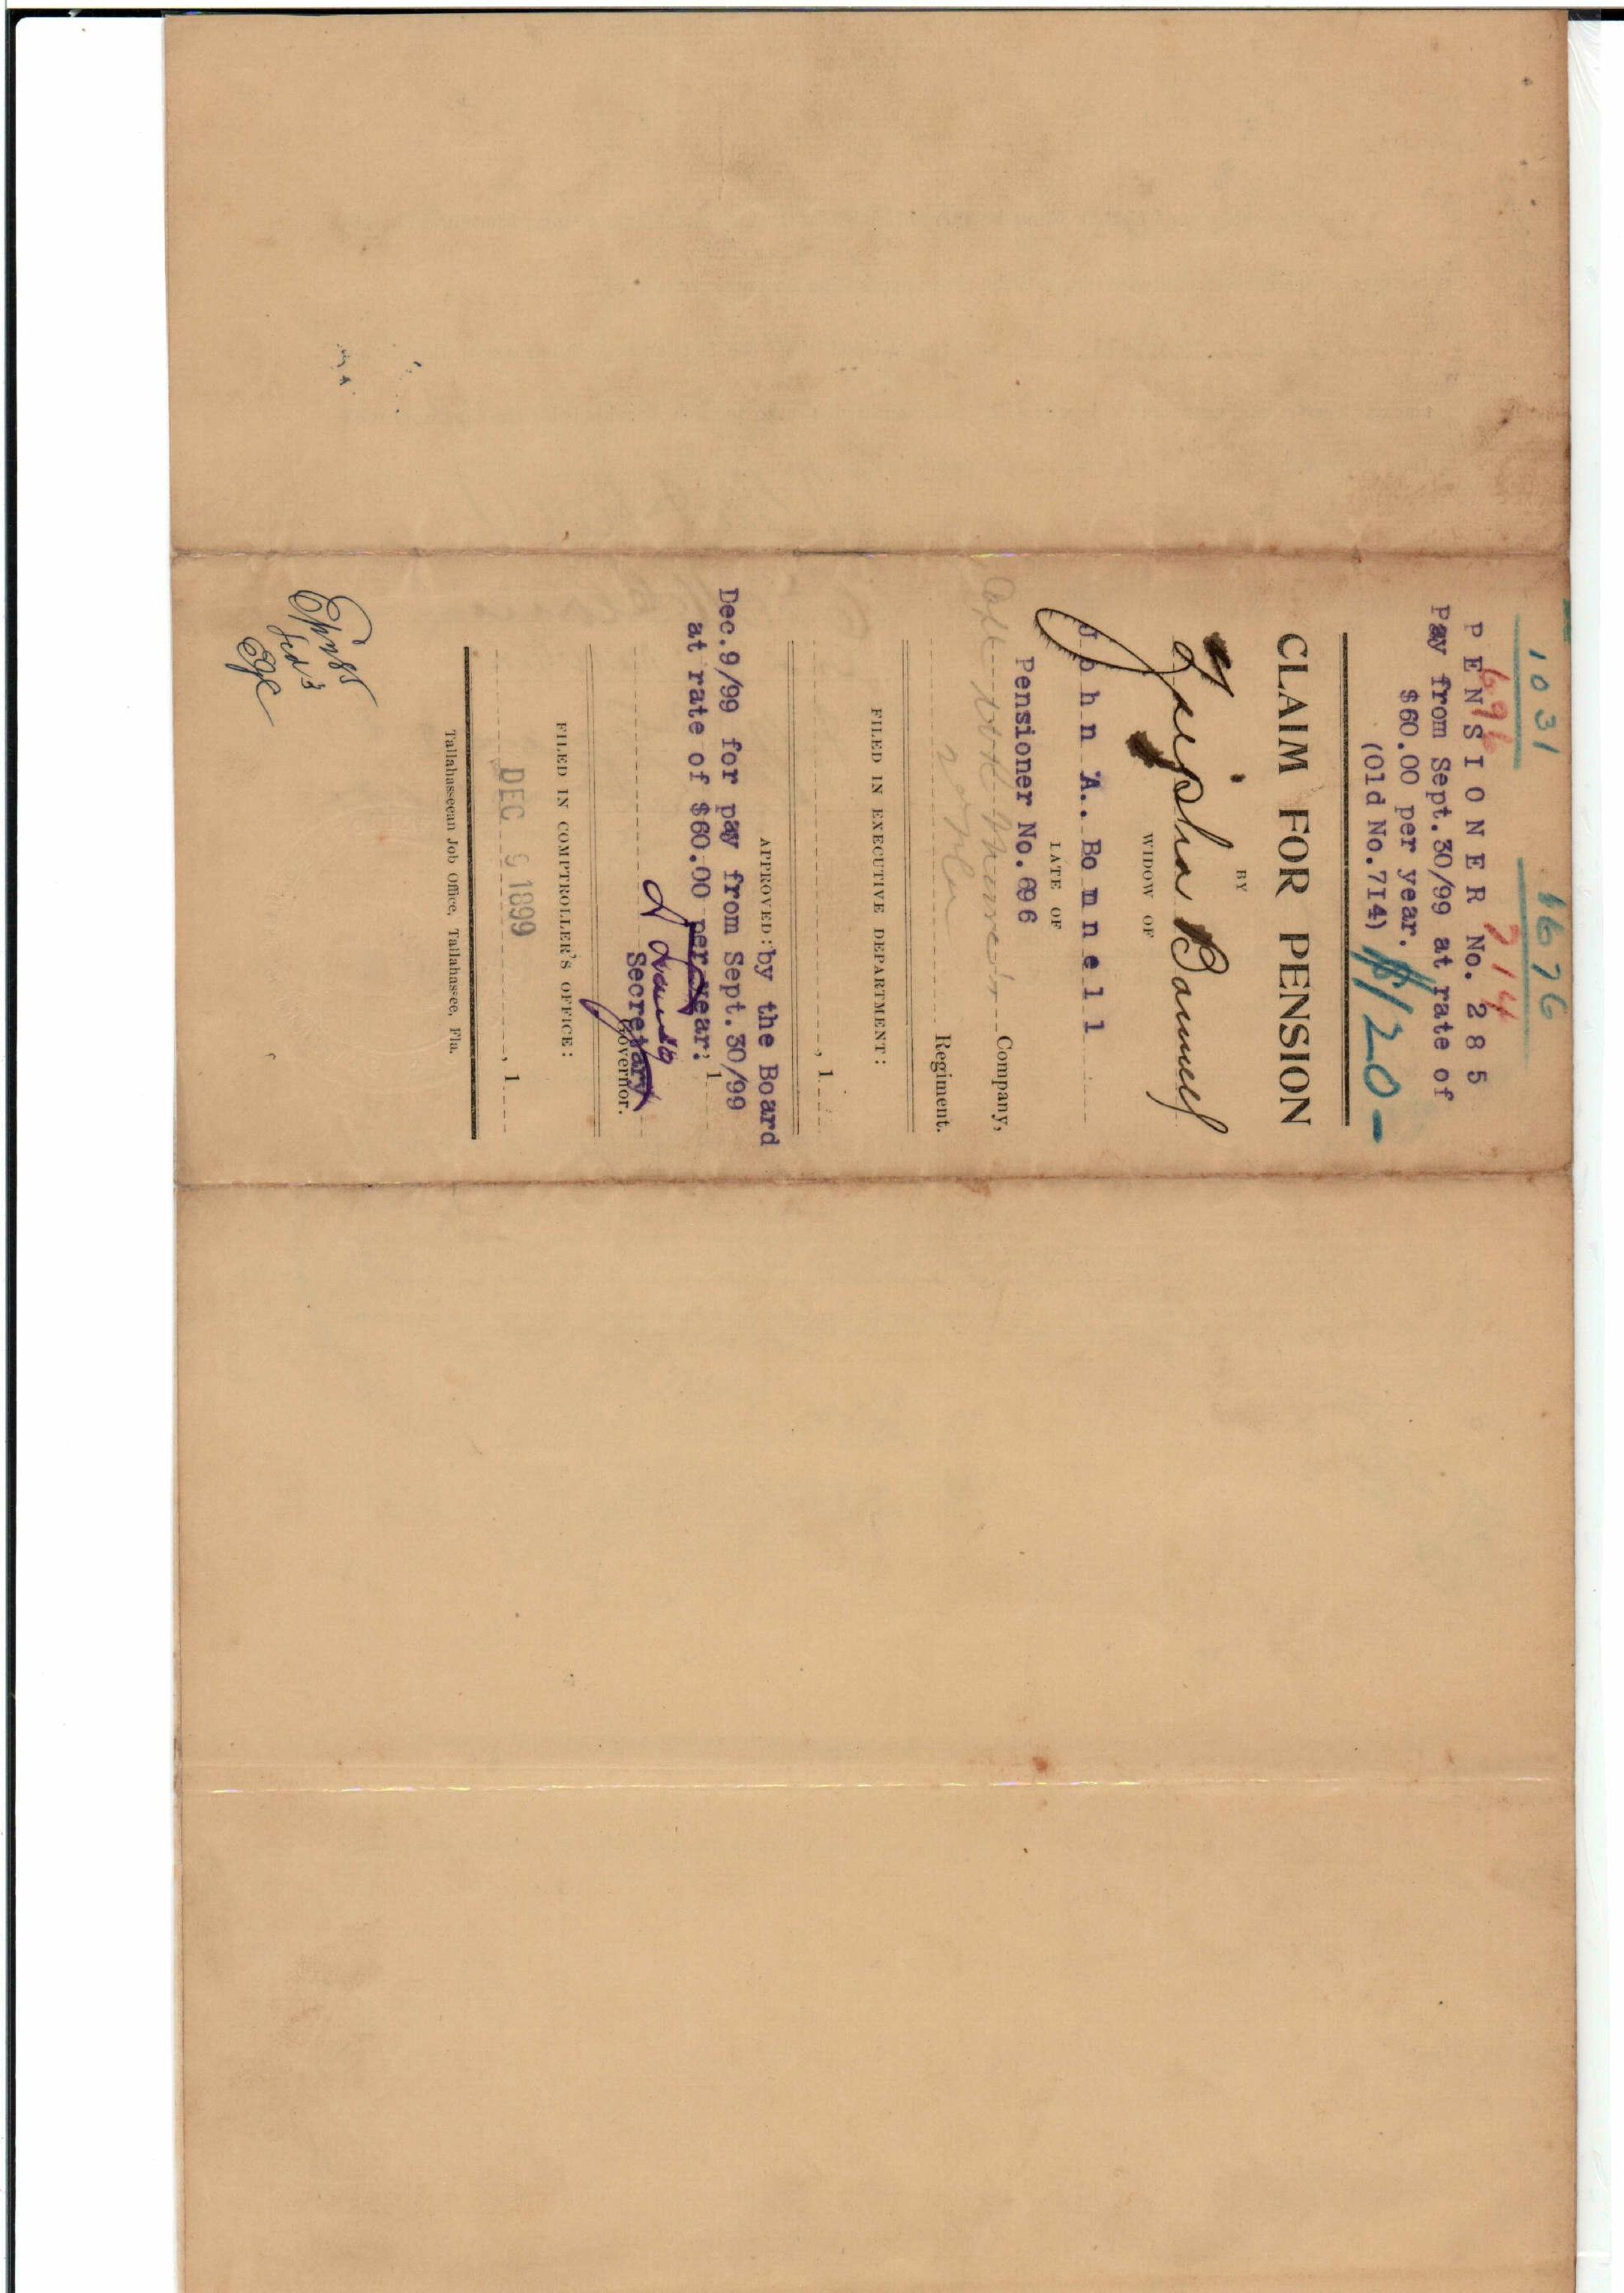 1031 1676
696 714
PENSIONER No. 285
Pay from Sept.30/99 at rate of
$60.00 per year.
(Old No.714) $120-
CLAIM FOR PENSION
BY
Bonnell
WIDOW OF
John A. Bonnell
LATE OF
Pensioner No.696
Company,
Regiment.
FILED IN EXECUTIVE DEPARTMENT:
, 1
APPROVED: by the Board
Dec.9/99 for pay from Sept.30/99
at rate of $60.00 per year. , 1
Secretary
Governor.
FILED IN COMPTROLLER'S OFFICE:
DEC 9 1899 , 1
Tallahasseean Job Office, Tallahassee, Fla.